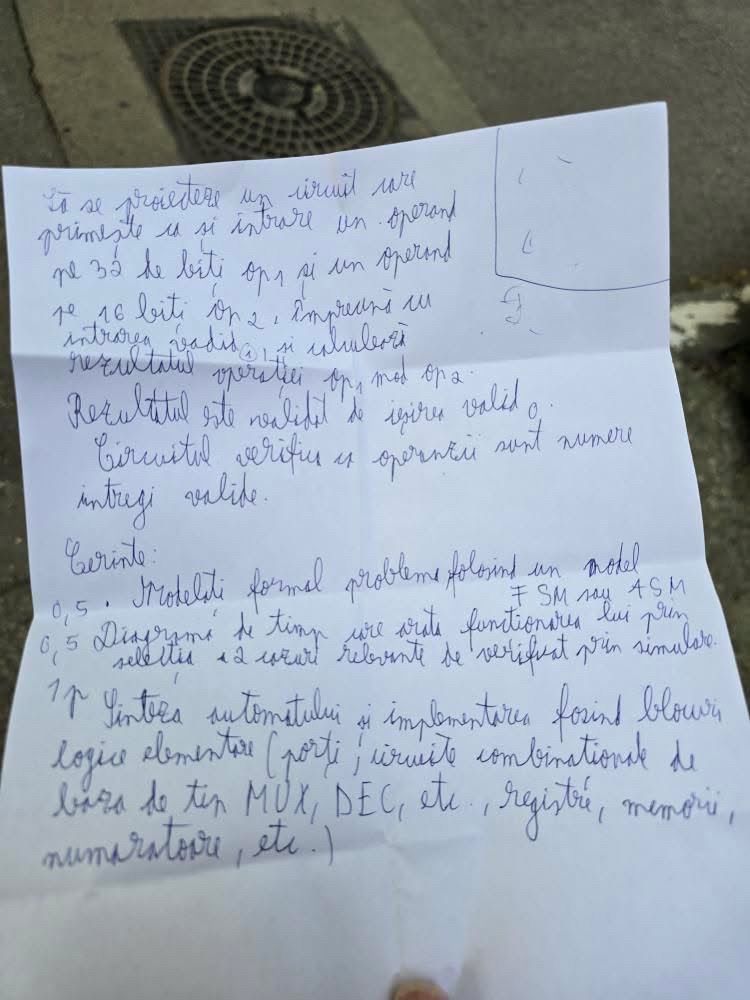 Să se proiecteze un circuit care
primește ca și intrare un operand
pe 32 de biți op1 și un operand
pe 16 biți op2, împreună cu
intrarea valid 1, și calculează
rezultatul operației op1 mod op2.
Rezultatul este validat de ieșirea valid o.
Circuitul verifica ca operanzii sunt numere
intregi valide.
Cerinte:
0,5 . Modelati formal problema folosind un model
FSM sau ASM
0,5 Diagramă de timp care arata functionarea lui prin
selectia a 2 cazuri relevante de verificat prin simulare.
1p Sinteza automatului și implementarea fosind blocuri
logice elementare (porți, circuite combinationale de
baza de tip MUX, DEC, etc., registre, memorii,
numaratoare, etc.)